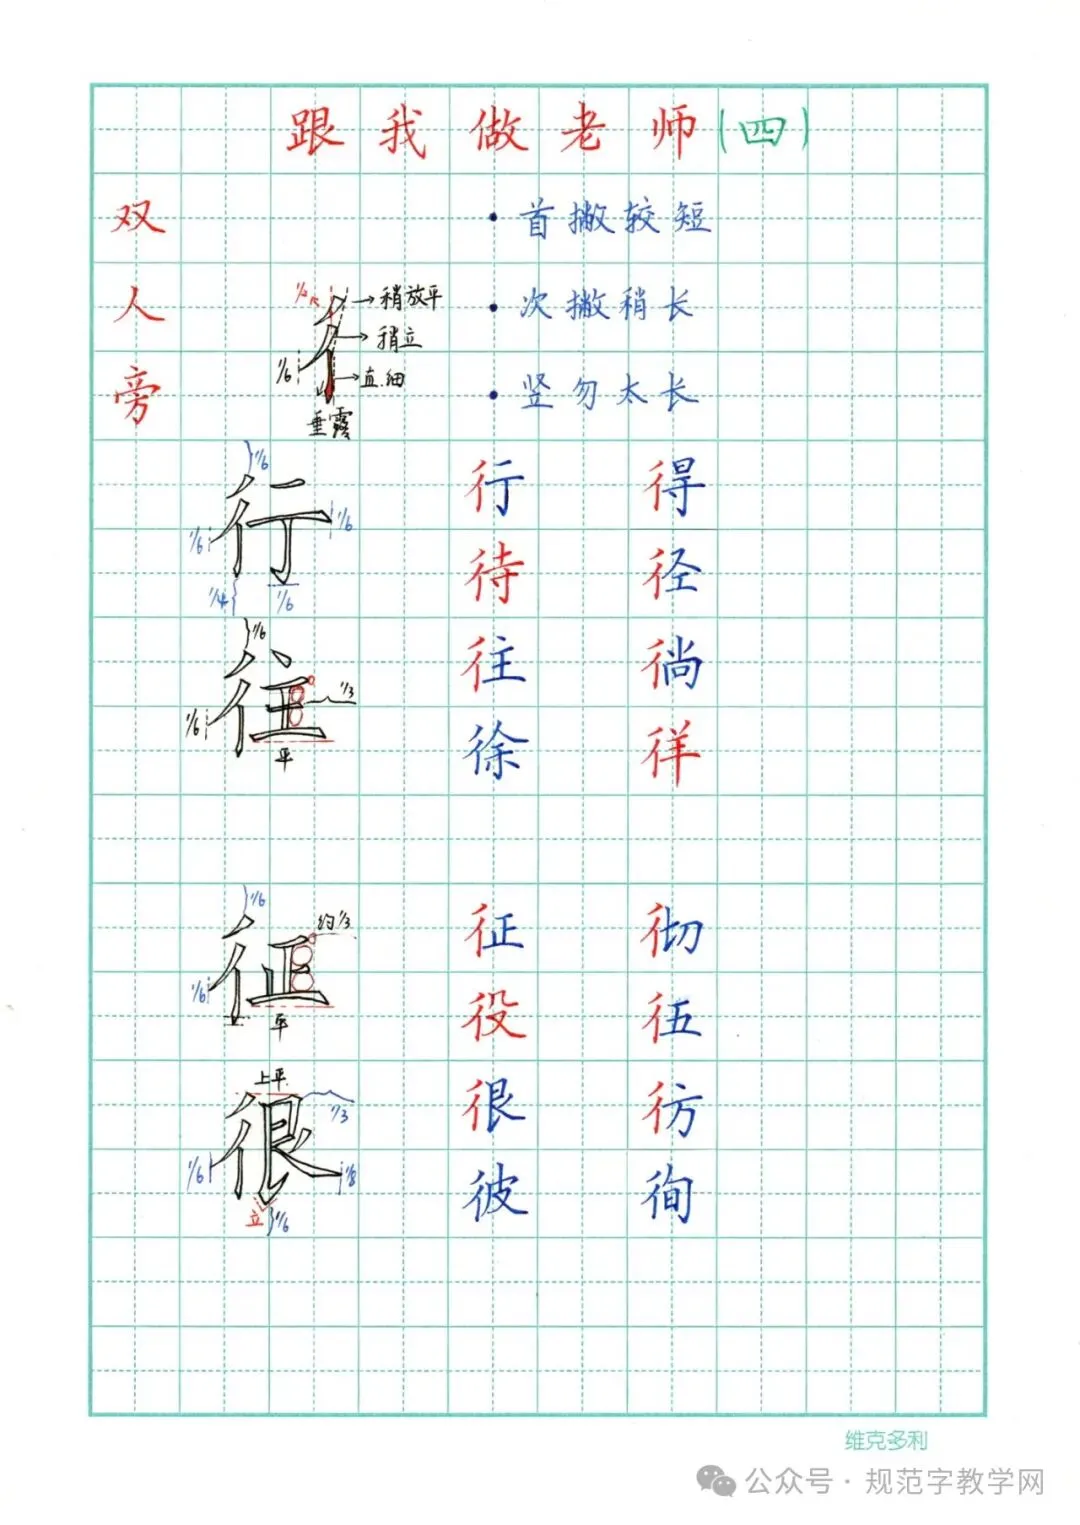 跟我做老师(四)
双人旁
• 首撇较短
• 次撇稍长
• 竖勿太长
1/2
稍放平
稍立
1/6
直.细
垂露
1/6
行
1/6
1/6
1/4
1/6
行 得
待 径
1/6
往
1/3
1/6
平
往 徜
徐 徉
1/6
征
约1/3
1/6
平
征 彻
役 彳五
上平
很
1/3
1/6
1/8
立
1/6
很 彷
彼 徇
维克多利
公众号 · 规范字教学网